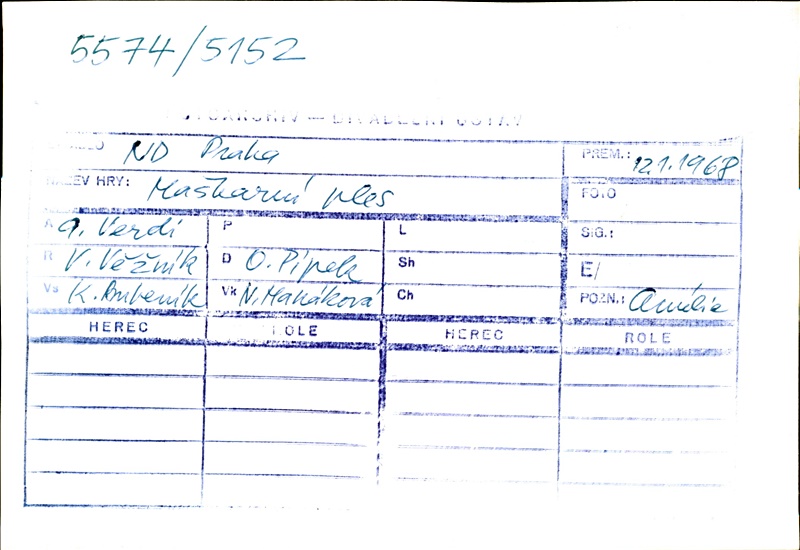 5574/5152
ND Praha PREM.: 12.1.1968
HRY: Maškarní ples FOTO
A G. Verdi P L SIG.:
R V. Věžník D O. Pipek Sh E/
Vs K. Bubeník Vk N. Maňáková Ch POZN.: Amélie
HEREC ROLE HEREC ROLE